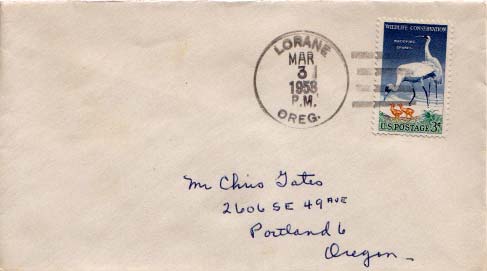 WILDLIFE CONSERVATION
WHOOPING
CRANES
U.S. POSTAGE 3¢
LORANE
MAR
3
1958
P.M.
OREG.
Mr Chris Gates
2606 SE 49 AVE
Portland 6
Oregon